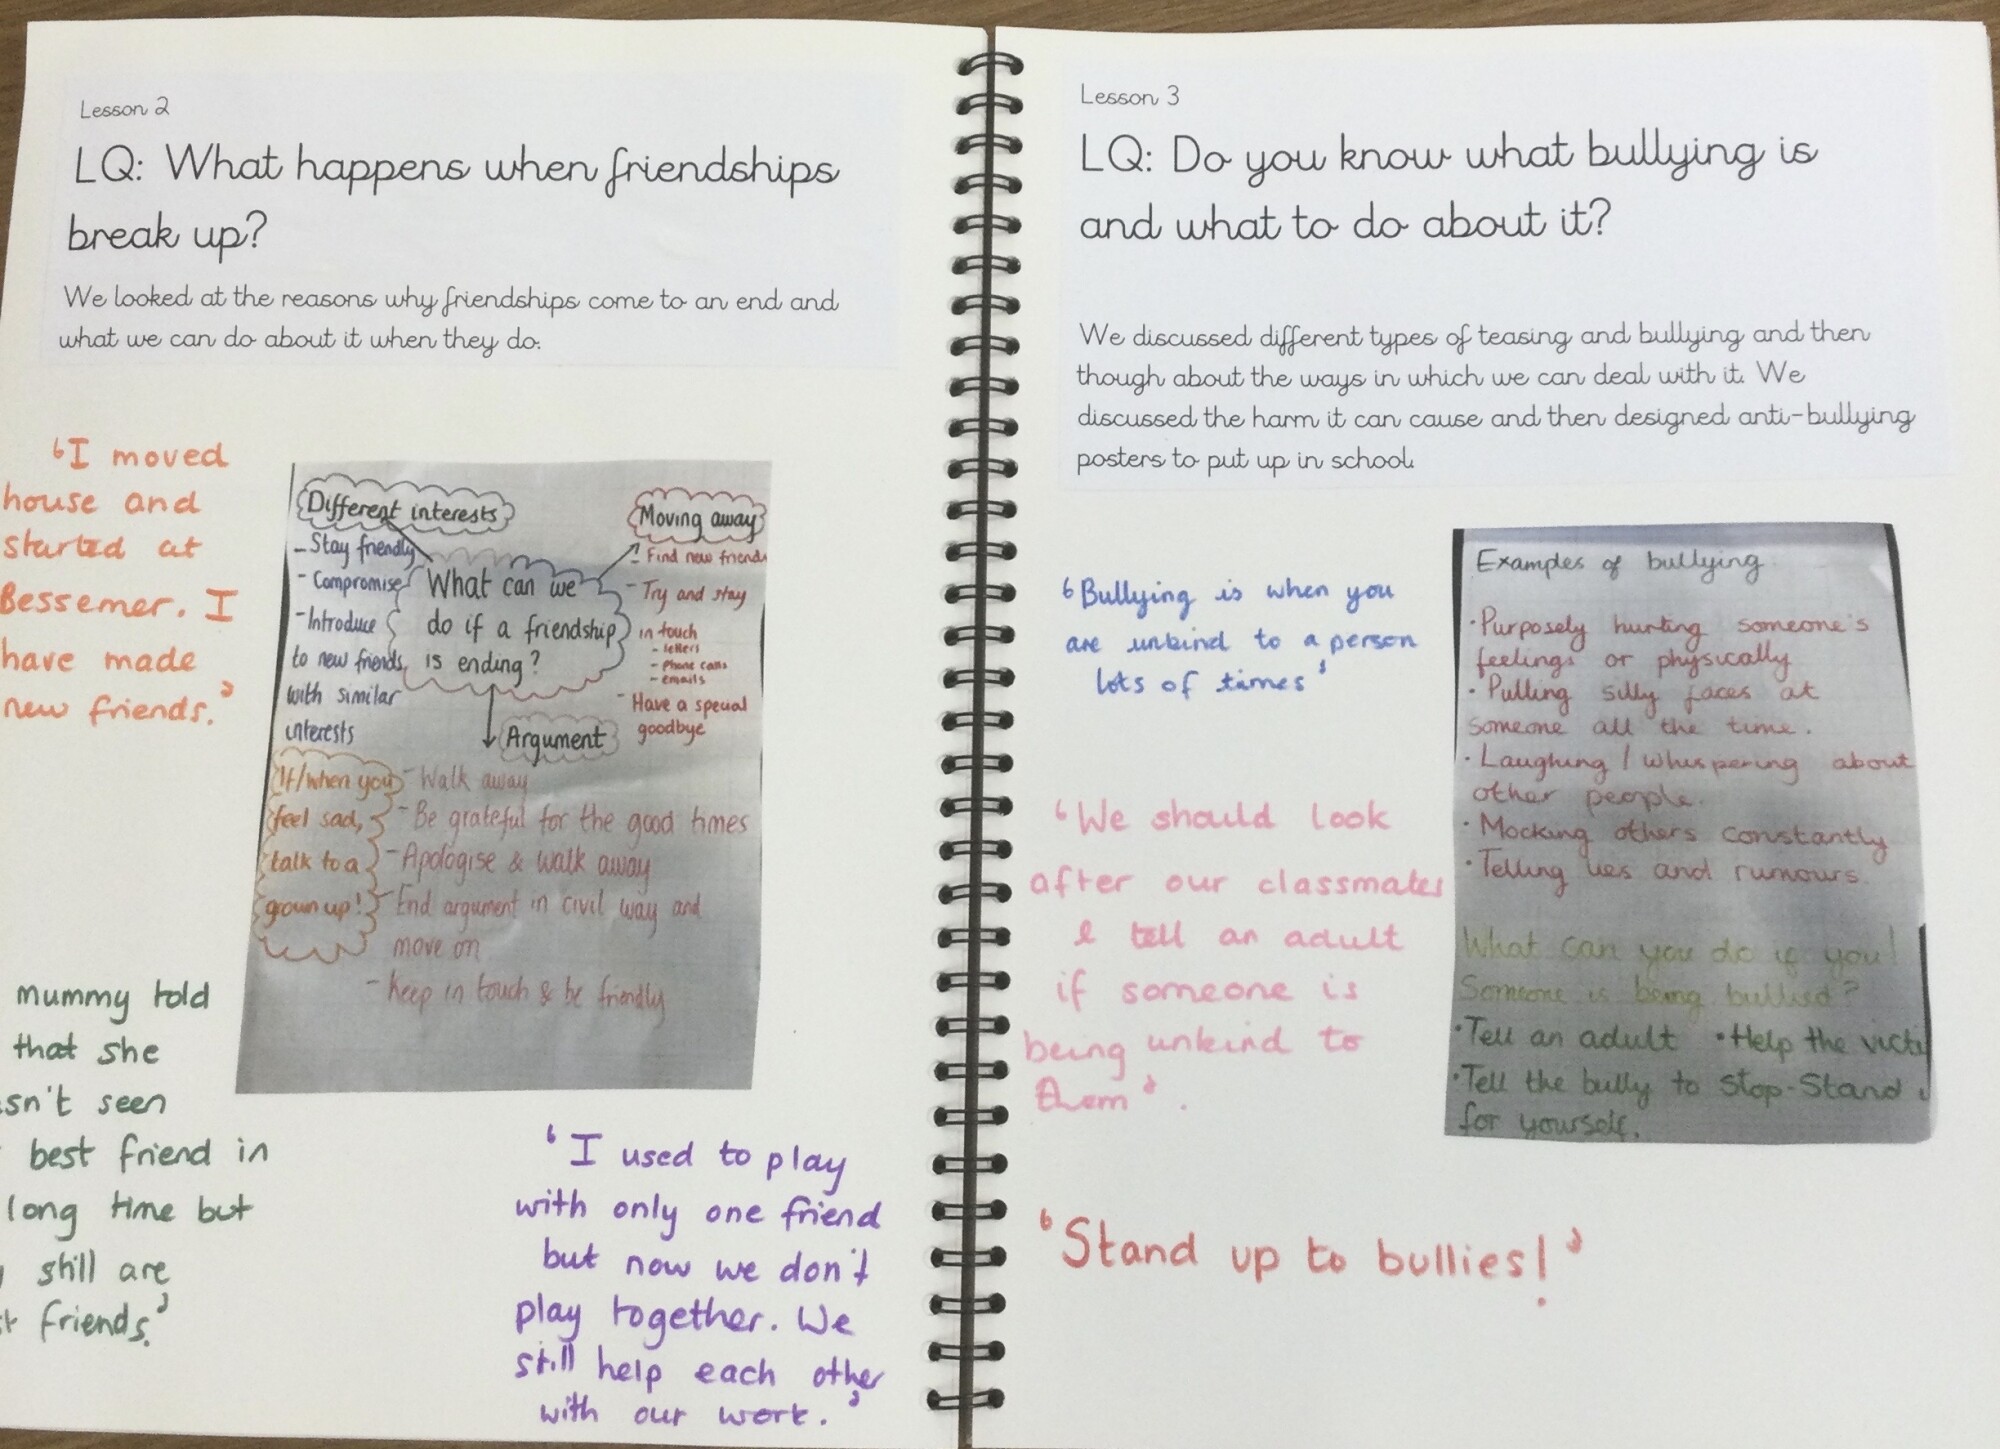 Lesson 2
LQ: What happens when friendships
break up?
We looked at the reasons why friendships come to an end and
what we can do about it when they do.
'I moved
house and
started at
Bessemer. I
have made
new friends.'
Different interests
- Stay friendly
- Compromise
- Introduce
to new friends
with similar
interests
What can we
do if a friendship
is ending?
Moving away
- Find new friends
- Try and stay
in touch
- letters
- Phone calls
- emails
- Have a special
goodbye
Argument
If/when you
feel sad,
talk to a
grown up!
- Walk away
- Be grateful for the good times
- Apologise & walk away
- End argument in civil way and
move on
- Keep in touch & be friendly
mummy told
that she
seen
best friend in
long time but
still are
friends.'
'I used to play
with only one friend
but now we don't
play together. We
still help each other
with our work.'
Lesson 3
LQ: Do you know what bullying is
and what to do about it?
We discussed different types of teasing and bullying and then
though about the ways in which we can deal with it. We
discussed the harm it can cause and then designed anti-bullying
posters to put up in school.
'Bullying is when you
are unkind to a person
lots of times'
'We should look
after our classmates
& tell an adult
if someone is
being unkind to
them'.
'Stand up to bullies!'
Examples of bullying.
• Purposely hurting someone's
feelings or physically
• Pulling silly faces at
someone all the time.
• Laughing / whispering about
other people.
• Mocking others constantly
• Telling lies and rumours.
What can you do if you/
Someone is being bullied?
• Tell an adult • Help the
• Tell the bully to stop - Stand
for yourself.